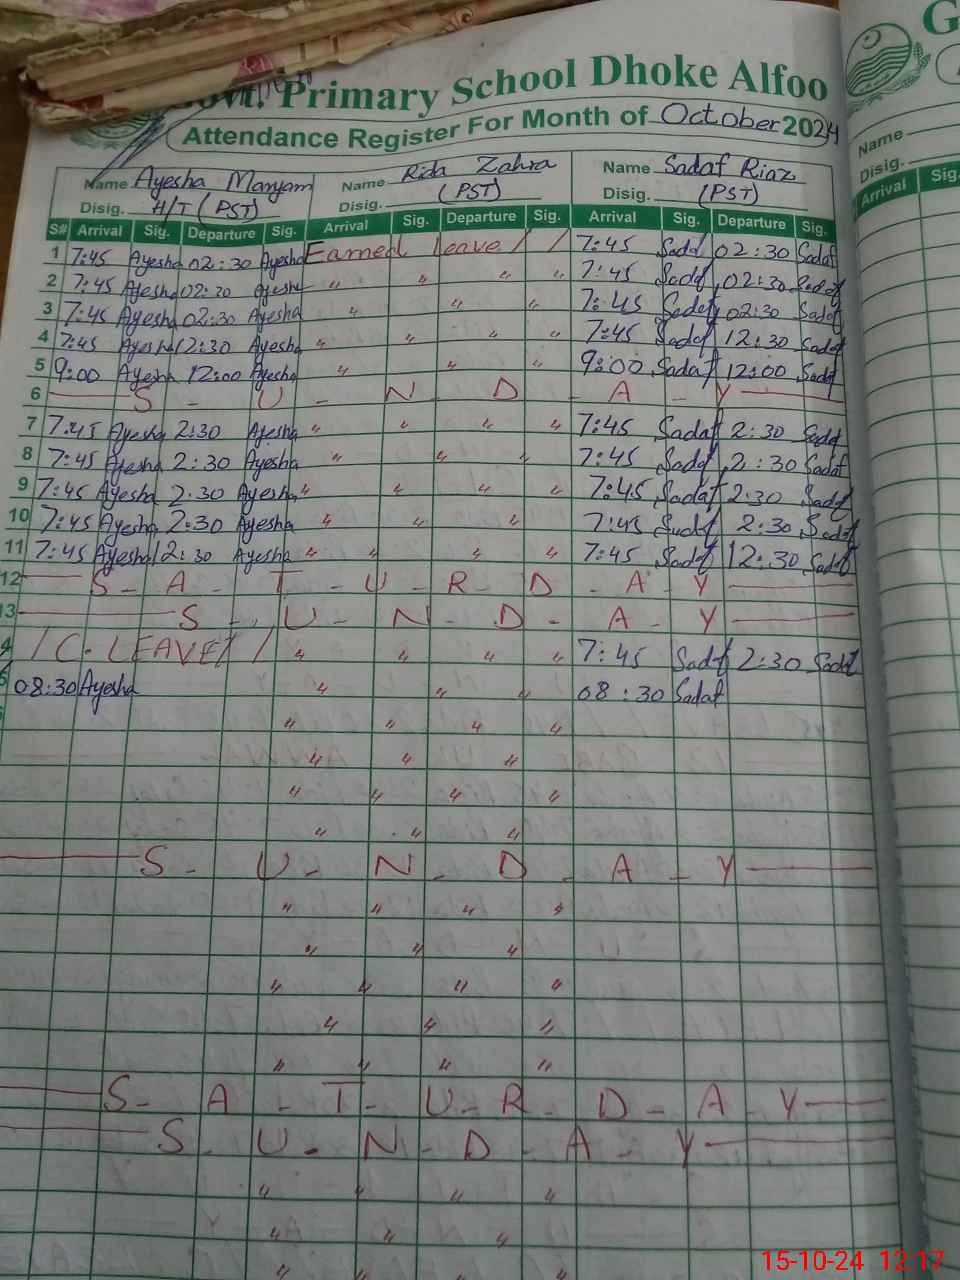 Govt. Primary School Dhoke Alfoo
Attendance Register For Month of October 2024
Name Ayesha Maryam Name Rida Zahra Name Sadaf Riaz
Disig. H/T (PST) Disig. (PST) Disig. (PST)
S# Arrival Sig. Departure Sig. Arrival Sig. Departure Sig. Arrival Sig. Departure Sig.
1 7:45 Ayesha 02:30 Ayesha Earned leave / / 7:45 Sadaf 02:30 Sadaf
2 7:45 Ayesha 02:30 Ayesha " " " " 7:45 Sadaf 02:30 Sadaf
3 7:45 Ayesha 02:30 Ayesha " " " 7:45 Sadaf 02:30 Sadaf
4 7:45 Ayesha 12:30 Ayesha " " " " 7:45 Sadaf 12:30 Sadaf
5 9:00 Ayesha 12:00 Ayesha " " " 9:00 Sadaf 12:00 Sadaf
6 S - U - N - D - A - Y
7 7:45 Ayesha 2:30 Ayesha " " " " 7:45 Sadaf 2:30 Sadaf
8 7:45 Ayesha 2:30 Ayesha " " " 7:45 Sadaf 2:30 Sadaf
9 7:45 Ayesha 2:30 Ayesha " " " " 7:45 Sadaf 2:30 Sadaf
10 7:45 Ayesha 2:30 Ayesha " " " 7:45 Sadaf 2:30 Sadaf
11 7:45 Ayesha 12:30 Ayesha " " " " 7:45 Sadaf 12:30 Sadaf
12 S - A - T - U - R - D - A - Y
13 S - U - N - D - A - Y
4 / C. LEAVE / / " " " " 7:45 Sadaf 2:30 Sadaf
5 08:30 Ayesha " " " 08:30 Sadaf
" " " "
" " "
" " " "
" " "
S - U - N - D - A - Y
" " " "
" " "
" " " "
" " "
" " " "
S - A - T - U - R - D - A - Y
S - U - N - D - A - Y
" " " "
" " "
" " "
G
Name
Disig.
Arrival Sig.
15-10-24 12:17